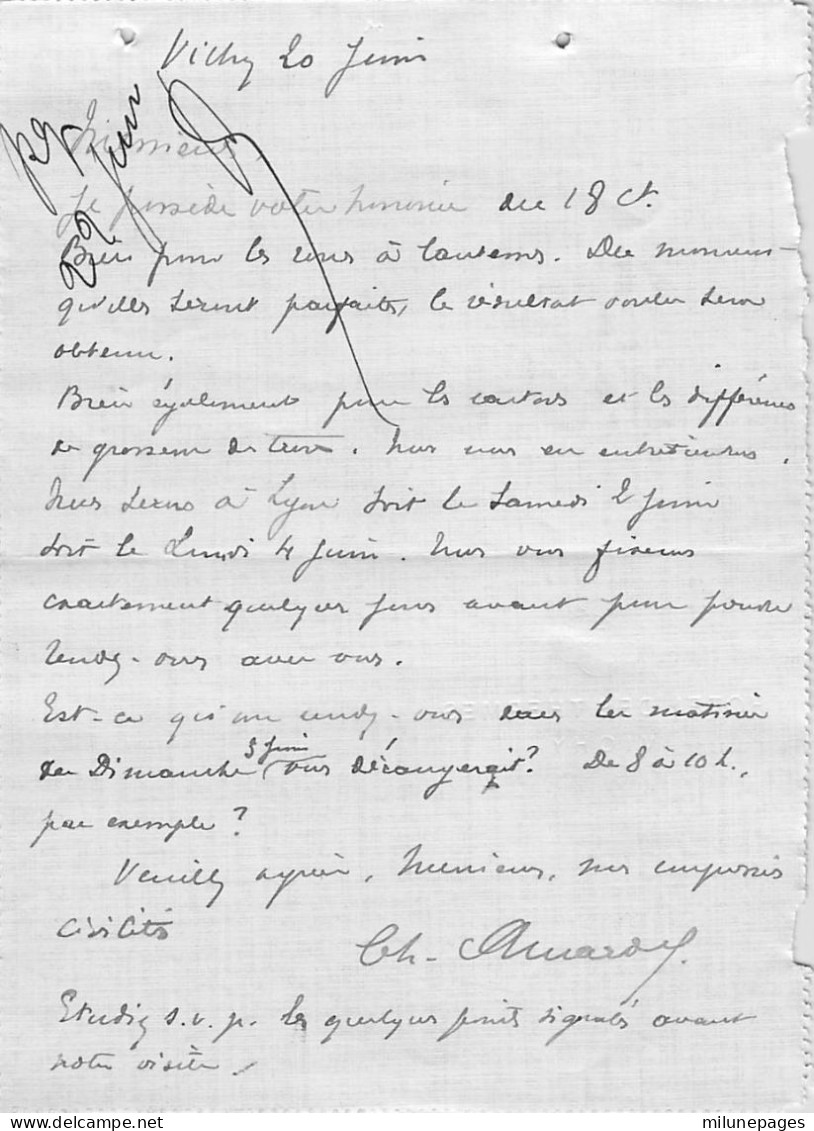 Vichy 20 Juin
Monsieur,
Je possède votre honorée du 18 ct.
Bien pour les à tantièmes. Du moment
qu'elles seront parfaites, le résultat voulu sera
obtenu.
Bien également pour les et les différences
de grosseur des . Nous vous en entretiendrons.
Nous serons à Lyon soit le Samedi 2 Juin
soit le Lundi 4 Juin. Nous vous fixerons
exactement quelques jours avant pour prendre
rendez-vous avec vous.
Est-ce qu'un rendez-vous dans la matinée
du Dimanche 3 Juin vous dérangerait? De 8 à 10 h.,
par exemple?
Veuillez agréer, Monsieur, nos empressées
civilités
Ch.
Etudiez s.v.p. les quelques points signalés avant
notre visite.
22 Juin
delcampe.net
milunepages